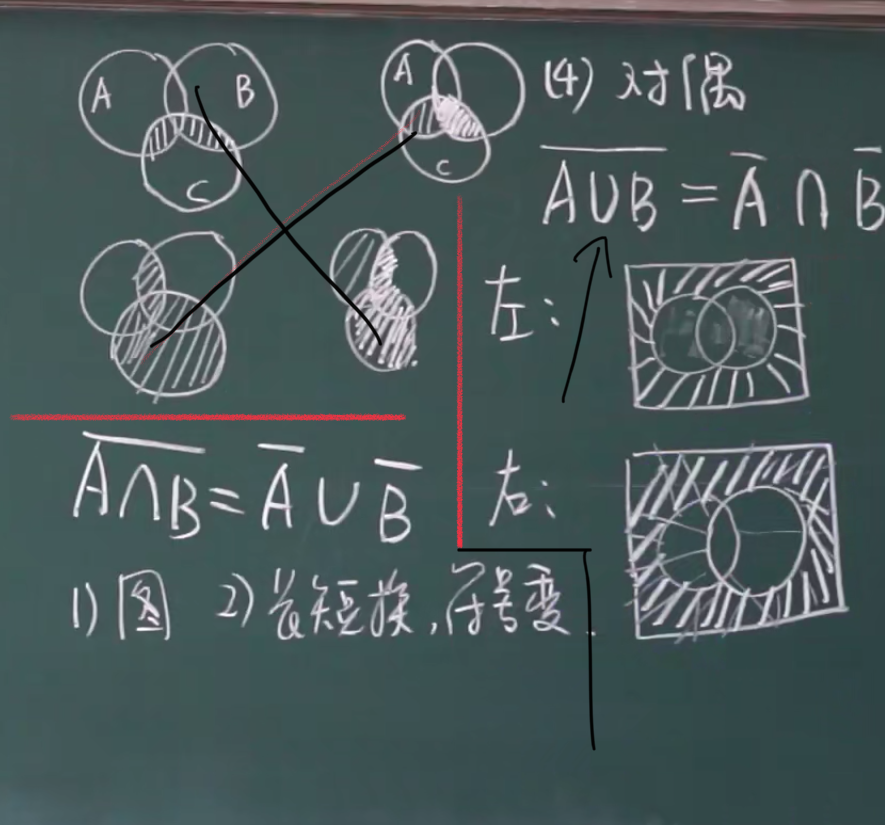 A B C
A C
(4) 对偶
\overline{A∪B} = \overline{A} ∩ \overline{B}
左:
右:
\overline{A∩B} = \overline{A} ∪ \overline{B}
1) 图 2) 长短换,符号变.